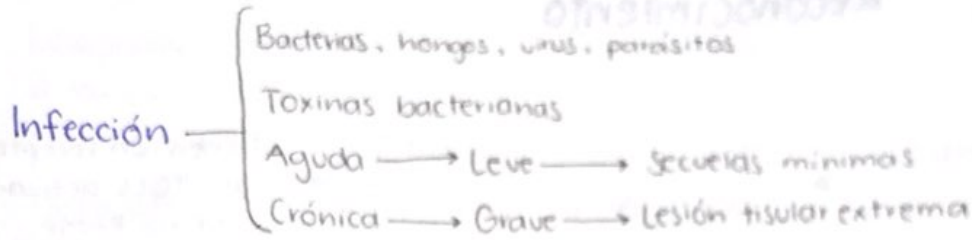 Bacterias, hongos, virus, parásitos
Toxinas bacterianas
Infección
Aguda → Leve → Secuelas mínimas
Crónica → Grave → Lesión tisular extrema